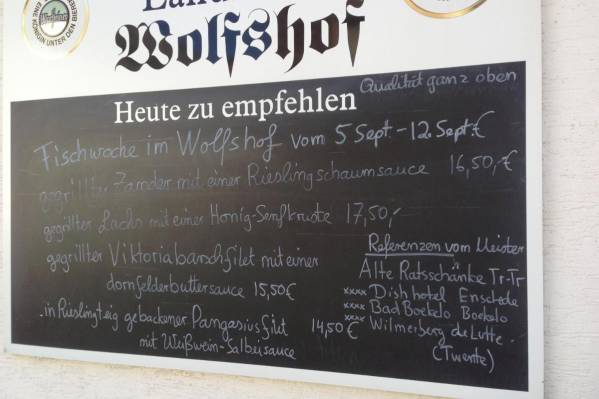 EINE KÖNIGIN UNTER DEN BIEREN
Wolfshof
Qualität ganz oben
Heute zu empfehlen
Fischwoche im Wolfshof vom 5 Sept. - 12. Sept. €
gegrillter Zander mit einer Rieslingschaumsauce 16,50,-€
gegrillter Lachs mit einer Honig-Senfkruste 17,50,-
gegrillter Viktoriabarschfilet mit einer
dornfelderbuttersauce 15,50€
in Rieslingteig gebackener Pangasiusfilet 14,50€
mit Weißwein-Salbeisauce
Referenzen vom Meister
Alte Ratsschänke Tr-Tr
xxxx Dish hotel Enschede
xxxx Bad Boekelo Boekelo
xxxx Wilmersberg de Lutte
(Twente)